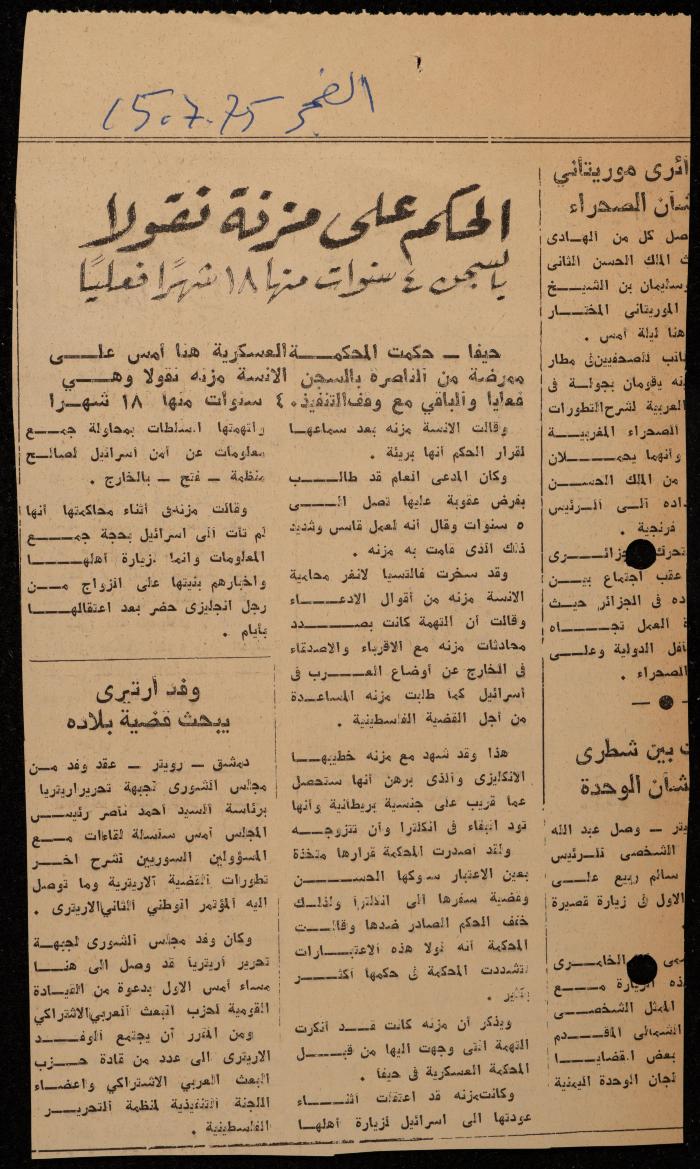 الفجر 15.7.75
الحكم على مزنة نقولا
بالسجن ٤ سنوات منها ١٨ شهرًا فعليًا
حيفا ــ حكمت المحكمة العسكرية هنا أمس على
ممرضة من الناصرة بالسجن الانسة مزنه نقولا وهي
فعليا والباقي مع وقف التنفيذ ٤٠ سنوات منها ١٨ شهرا
وقالت الانسة مزنه بعد سماعها
لقرار الحكم أنها بريئة .
وكان المدعى العام قد طالب
بفرض عقوبة عليها تصل الى
٥ سنوات وقال أنه لعمل قاس وشديد
ذلك الذى قامت به مزنه .
وقد سخرت فالتسيا لانغر محامية
الانسة مزنه من أقوال الادعاء
وقالت أن التهمة كانت بصدد
محادثات مزنه مع الاقرباء والاصدقاء
فى الخارج عن أوضاع العرب فى
أسرائيل كما طلبت مزنه المساعدة
من أجل القضية الفلسطينية .
هذا وقد شهد مع مزنه خطيبها
الانكليزى والذى برهن أنها ستحصل
عما قريب على جنسية بريطانية وأنها
تود البقاء فى انكلترا وأن تتزوجه
ولقد أصدرت المحكمة قرارها متخذة
بعين الاعتبار سلوكها الحسن
وقضية سفرها الى انكلترا ولذلك
خفف الحكم الصادر ضدها وقالت
المحكمة أنه لولا هذه الاعتبارات
لتشددت المحكمة فى حكمها أكثر
بكثير .
ويذكر أن مزنه كانت قد أنكرت
التهمة التى وجهت اليها من قبل
المحكمة العسكرية فى حيفا .
وكانت مزنه قد اعتقلت أثناء
عودتها الى اسرائيل لزيارة أهلها
واتهمتها السلطات بمحاولة جمع
معلومات عن أمن أسرائيل لصالح
منظمة ــ فتح ــ بالخارج .
وقالت مزنه فى أثناء محاكمتها أنها
لم تأت الى اسرائيل بحجة جمع
المعلومات وانما لزيارة أهلها
واخبارهم بنيتها على الزواج من
رجل انجليزى حضر بعد اعتقالها
بأيام .
وفد أرتيرى
يبحث قضية بلاده
دمشق ــ رويتر ــ عقد وفد من
مجلس الشورى لجبهة تحرير اريتريا
برئاسة السيد أحمد ناصر رئيس
المجلس أمس سلسلة لقاءات مع
المسؤولين السوريين شرح اخر
تطورات القضية الاريترية وما توصل
اليه المؤتمر الوطني الثاني الاريترى .
وكان وفد مجلس الشورى لجبهة
تحرير أريتريا قد وصل الى هنا
مساء أمس الاول بدعوة من القيادة
القومية لحزب البعث العربي الاشتراكي
ومن المقرر أن يجتمع الوفد
الاريترى الى عدد من قادة حزب
البعث العربي الاشتراكي وأعضاء
اللجنة التنفيذية لمنظمة التحرير
الفلسطينية .
ائرى موريتاني
شأن الصحراء
صل كل من الهادى
الملك الحسن الثانى
وسليمان بن الشيخ
الموريتانى المختار
هنا ليلة أمس .
للصحفيين فى مطار
يقومان بجولة فى
العربية لشرح التطورات
الصحراء المغربية
وأنهما يحملان
من الملك الحسن
الى الرئيس
فرنجية .
تحرك جزائرى
عقب اجتماع بين
ده فى الجزائر حيث
العمل تجاه
الدولية وعلى
الصحراء .
بين شطرى
شأن الوحدة
يتر ــ وصل عبد الله
الشخصى للرئيس
سالم ربيع على
الاول فى زيارة قصيرة
الخامرى
ذه الزيارة مع
الممثل الشخصى
الشمالى المقدم
بعض القضايا
لجان الوحدة اليمنية